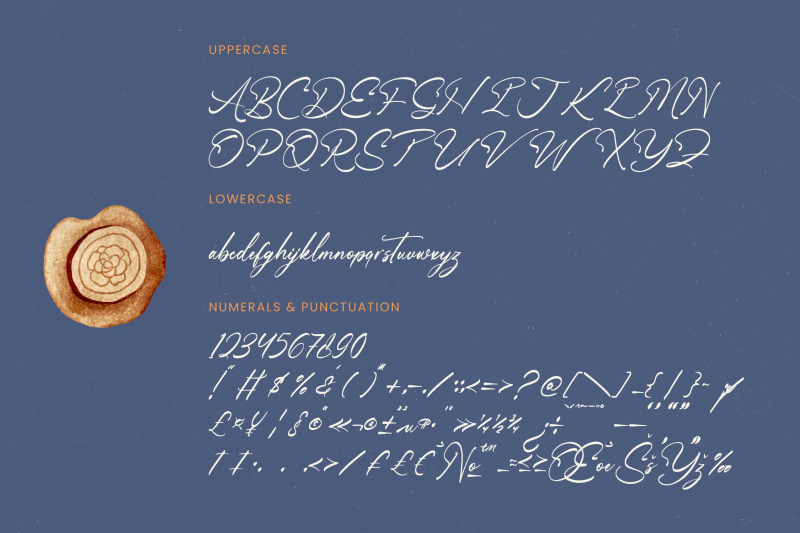 UPPERCASE
ABCDEFGHIJKLMN
OPQRSTUVWXYZ
LOWERCASE
abcdefghijklmnopqrstuvwxyz
NUMERALS & PUNCTUATION
1234567890
!"#$%&'()*+,-./:;<=>?@[\]_{|}~
£¤¥¦§¨©ª«¬®¯±²³µ¶·¸¹º»¼½¾¿÷
†‡•‹›⁄₣₤€№™−≈≤≥ŒœŠšŸž‰